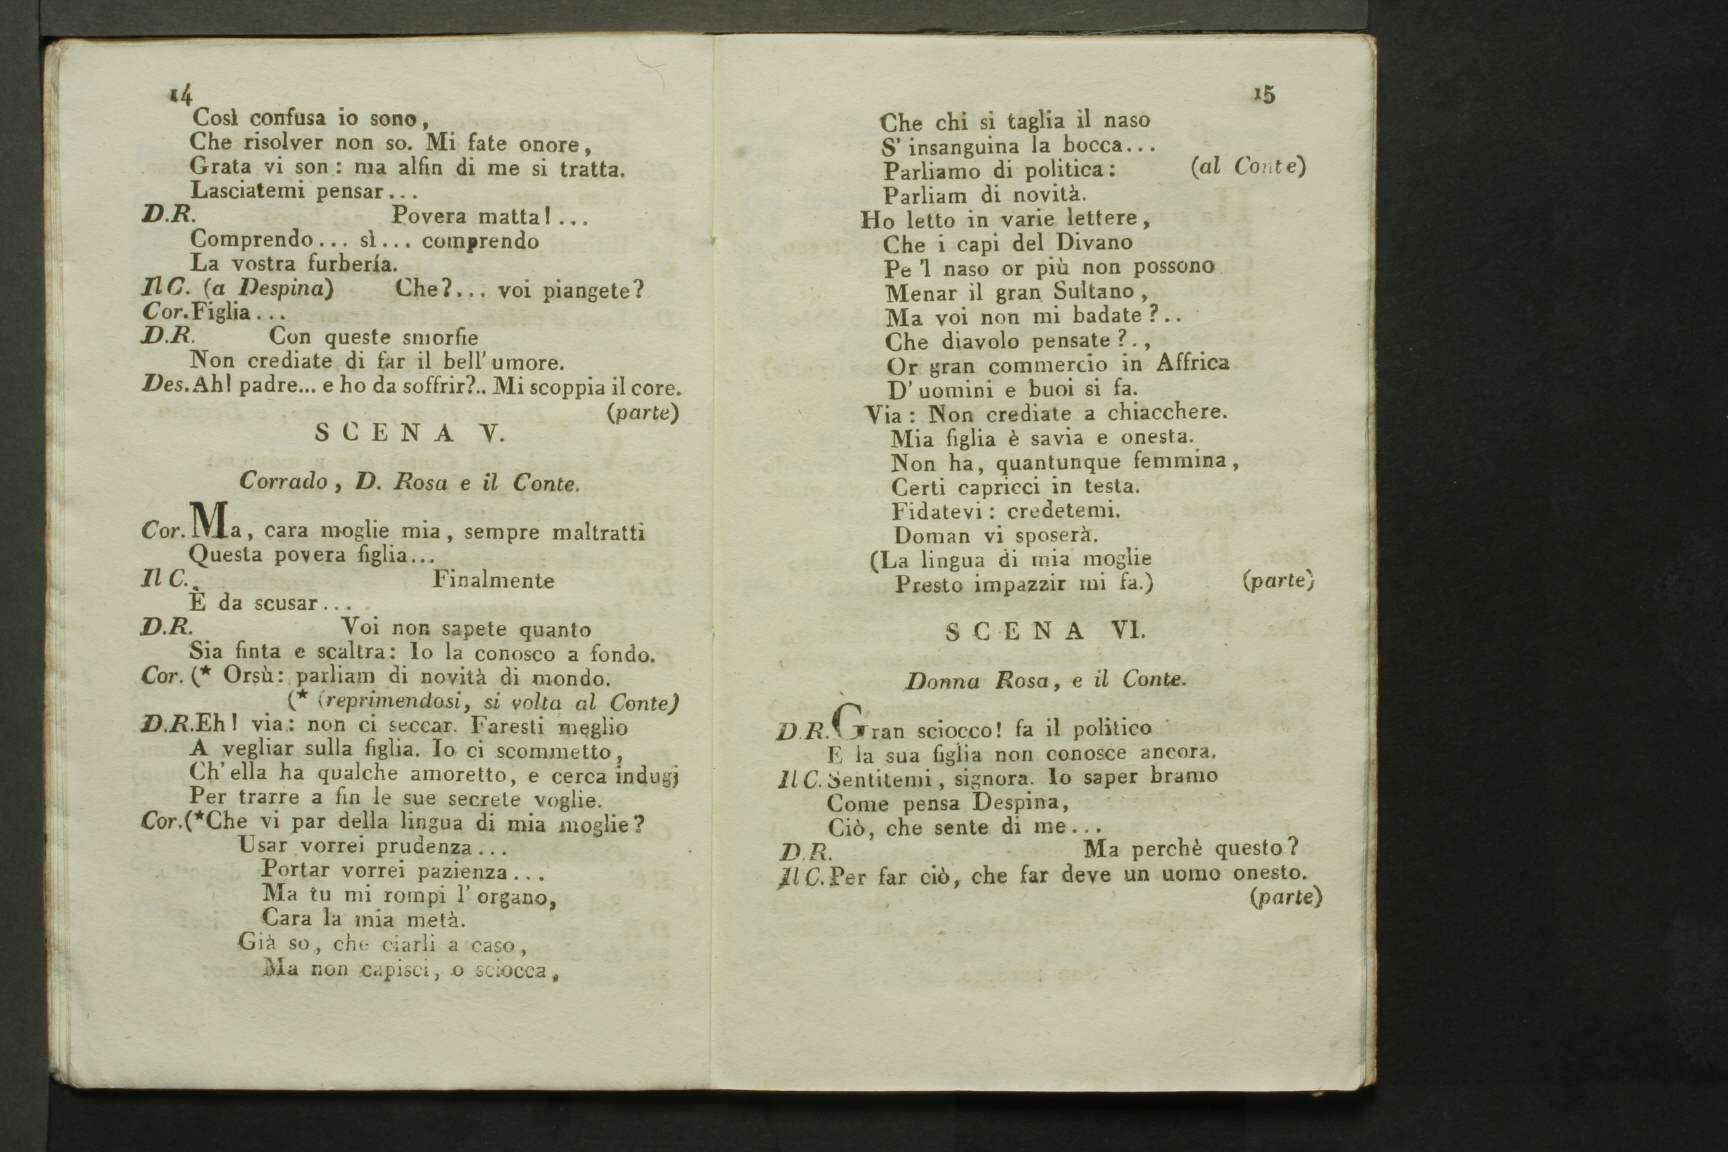 14
Così confusa io sono,
Che risolver non so. Mi fate onore,
Grata vi son: ma alfin di me si tratta.
Lasciatemi pensar...
D.R. Povera matta!...
Comprendo... sì... comprendo
La vostra furbería.
Il C. (a Despina) Che?... voi piangete?
Cor. Figlia...
D.R. Con queste smorfie
Non crediate di far il bell' umore.
Des. Ah! padre... e ho da soffrir?.. Mi scoppia il core.
(parte)
SCENA V.
Corrado, D. Rosa e il Conte.
Cor. Ma, cara moglie mia, sempre maltratti
Questa povera figlia...
Il C. Finalmente
È da scusar...
D.R. Voi non sapete quanto
Sia finta e scaltra: Io la conosco a fondo.
Cor. (* Orsù: parliam di novità di mondo.
(* (reprimendosi, si volta al Conte)
D.R. Eh! via: non ci seccar. Faresti meglio
A vegliar sulla figlia. Io ci scommetto,
Ch' ella ha qualche amoretto, e cerca indugj
Per trarre a fin le sue secrete voglie.
Cor. (*Che vi par della lingua di mia moglie?
Usar vorrei prudenza...
Portar vorrei pazienza...
Ma tu mi rompi l' organo,
Cara la mia metà.
Già so, che ciarli a caso,
Ma non capisci, o sciocca,
15
Che chi si taglia il naso
S' insanguina la bocca...
Parliamo di politica: (al Conte)
Parliam di novità.
Ho letto in varie lettere,
Che i capi del Divano
Pe 'l naso or più non possono
Menar il gran Sultano,
Ma voi non mi badate?..
Che diavolo pensate?.,
Or gran commercio in Affrica
D' uomini e buoi si fa.
Via: Non crediate a chiacchere.
Mia figlia è savia e onesta.
Non ha, quantunque femmina,
Certi capricci in testa.
Fidatevi: credetemi.
Doman vi sposerà.
(La lingua di mia moglie
Presto impazzir mi fa.) (parte)
SCENA VI.
Donna Rosa, e il Conte.
D.R. Gran sciocco! fa il politico
E la sua figlia non conosce ancora.
Il C. Sentitemi, signora. Io saper bramo
Come pensa Despina,
Ciò, che sente di me...
D.R. Ma perchè questo?
Il C. Per far ciò, che far deve un uomo onesto.
(parte)